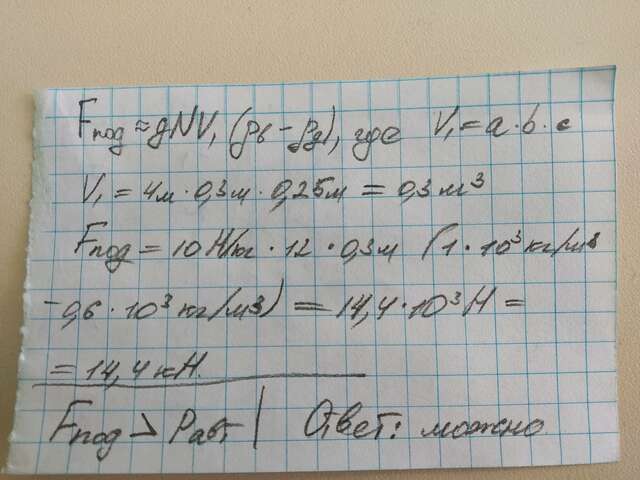 Fпод ≈ gNV₁ (ρв - ρд), где V₁ = a · b · c
V₁ = 4м · 0,3м · 0,25м = 0,3 м³
Fпод = 10 Н/кг · 12 · 0,3м (1 · 10³ кг/м³
- 0,6 · 10³ кг/м³) = 14,4 · 10³ Н =
= 14,4 кН.
Fпод > Pавт | Ответ: можно